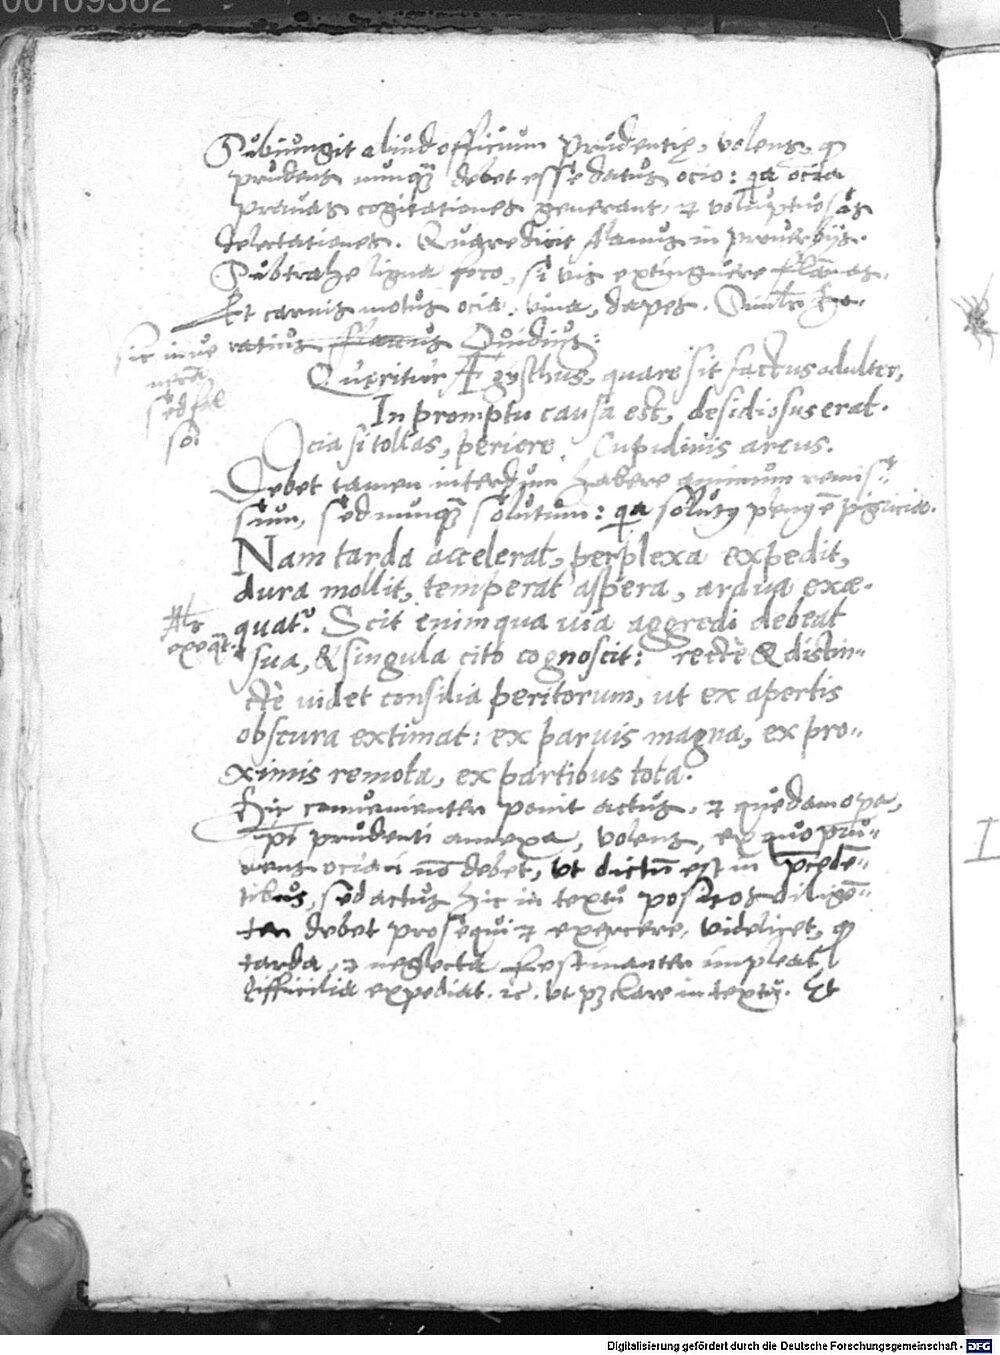 00109362
Subiungit aliud officium Prudentię, volens, ꝙ
prudens nunqꝫ debet esse datus ocio: qa ocia
prauas cogitationes generant, et voluptuosas
delectationes. Quare dicit Alanus in prouerbijs.
Subtrahe ligna foco, si vis extinguere flamas.
Et carnis motus ocia, vina, dapes.
ratius Flaccus Ouidius:
sic inue
sed fal
so:
Queritur Ægysthus, quare sit factus adulter,
In promptu causa est, desidiosus erat.
Ocia si tollas, periere Cupidinis arcus.
Debet tamen interdum habere animum remis=
sum, sed nunqꝫ solutum: qa
Nam tarda accelerat, perplexa expedit,
dura mollit, temperat aspera, ardua exæ-
quat. Scit enim qua uia aggredi debeat
Als
exeqt.
sua, & singula cito cognoscit: rectè & distin-
ctè uidet consilia peritorum, ut ex apertis
obscura extimat: ex paruis magna, ex pro-
ximis remota, ex partibus tota.
Hic conuenienter ponit actus, et quedam opa,
prudenti annexa, volens, ex quo pru-
dens ociari nō debet, vt dictū est in pcedē-
tibus, sed actus hic in textu positos diligē-
ter debet prosequi et exercere, videlicet, ꝙ
tarda, et neglecta festinanter impleat,
difficilia expediat. ic. vt pꝫ clare in textu. Et
Digitalisierung gefördert durch die Deutsche Forschungsgemeinschaft - DFG